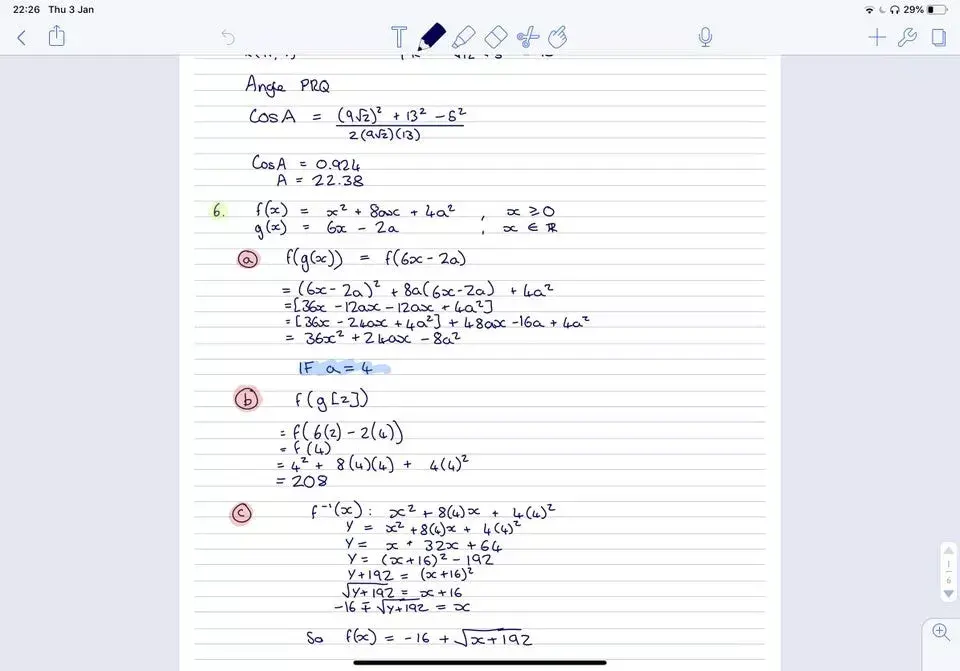 22:26 Thu 3 Jan
29%
Angle PRQ
CosA = (9√2)² + 13² - 5²
2(9√2)(13)
CosA = 0.924
A = 22.38
6. f(x) = x² + 8ax + 4a² , x ≥ 0
g(x) = 6x - 2a , x ∈ ℝ
a f(g(x)) = f(6x - 2a)
= (6x - 2a)² + 8a(6x - 2a) + 4a²
= [36x - 12ax - 12ax + 4a²]
= [36x - 24ax + 4a²] + 48ax - 16a + 4a²
= 36x² + 24ax - 8a²
IF a = 4
b f(g[2])
= f(6(2) - 2(4))
= f(4)
= 4² + 8(4)(4) + 4(4)²
= 208
c f⁻¹(x) : x² + 8(4)x + 4(4)²
y = x² + 8(4)x + 4(4)²
y = x + 32x + 64
y = (x+16)² - 192
y + 192 = (x+16)²
√y+192 = x + 16
-16 ∓ √y+192 = x
So f(x) = -16 + √x+192
1
6